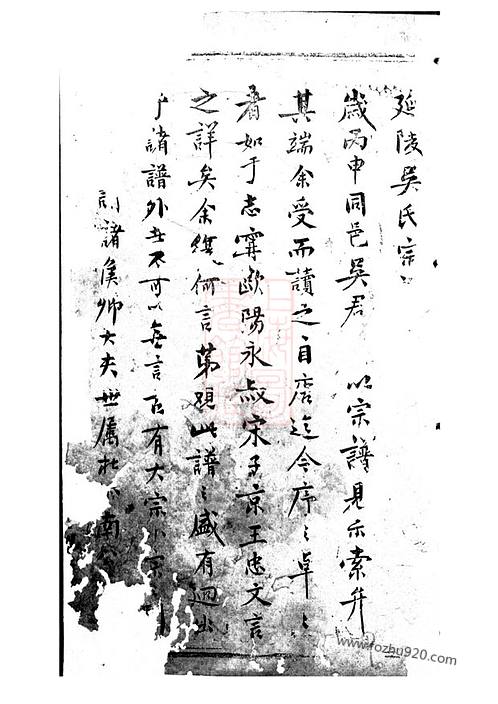 延陵吳氏宗
歲丙申同邑吳君 以宗譜見示索弁
其端余受而讀之自唐迄今序之卓卓
者如于志寧歐陽永叔宋子京王忠文言
之詳矣余復何言第觀此譜之盛有迥出
于諸譜外者不可以無言攷有大宗小宗
則諸侯卿大夫世屬杜 南
www.fozhu920.com